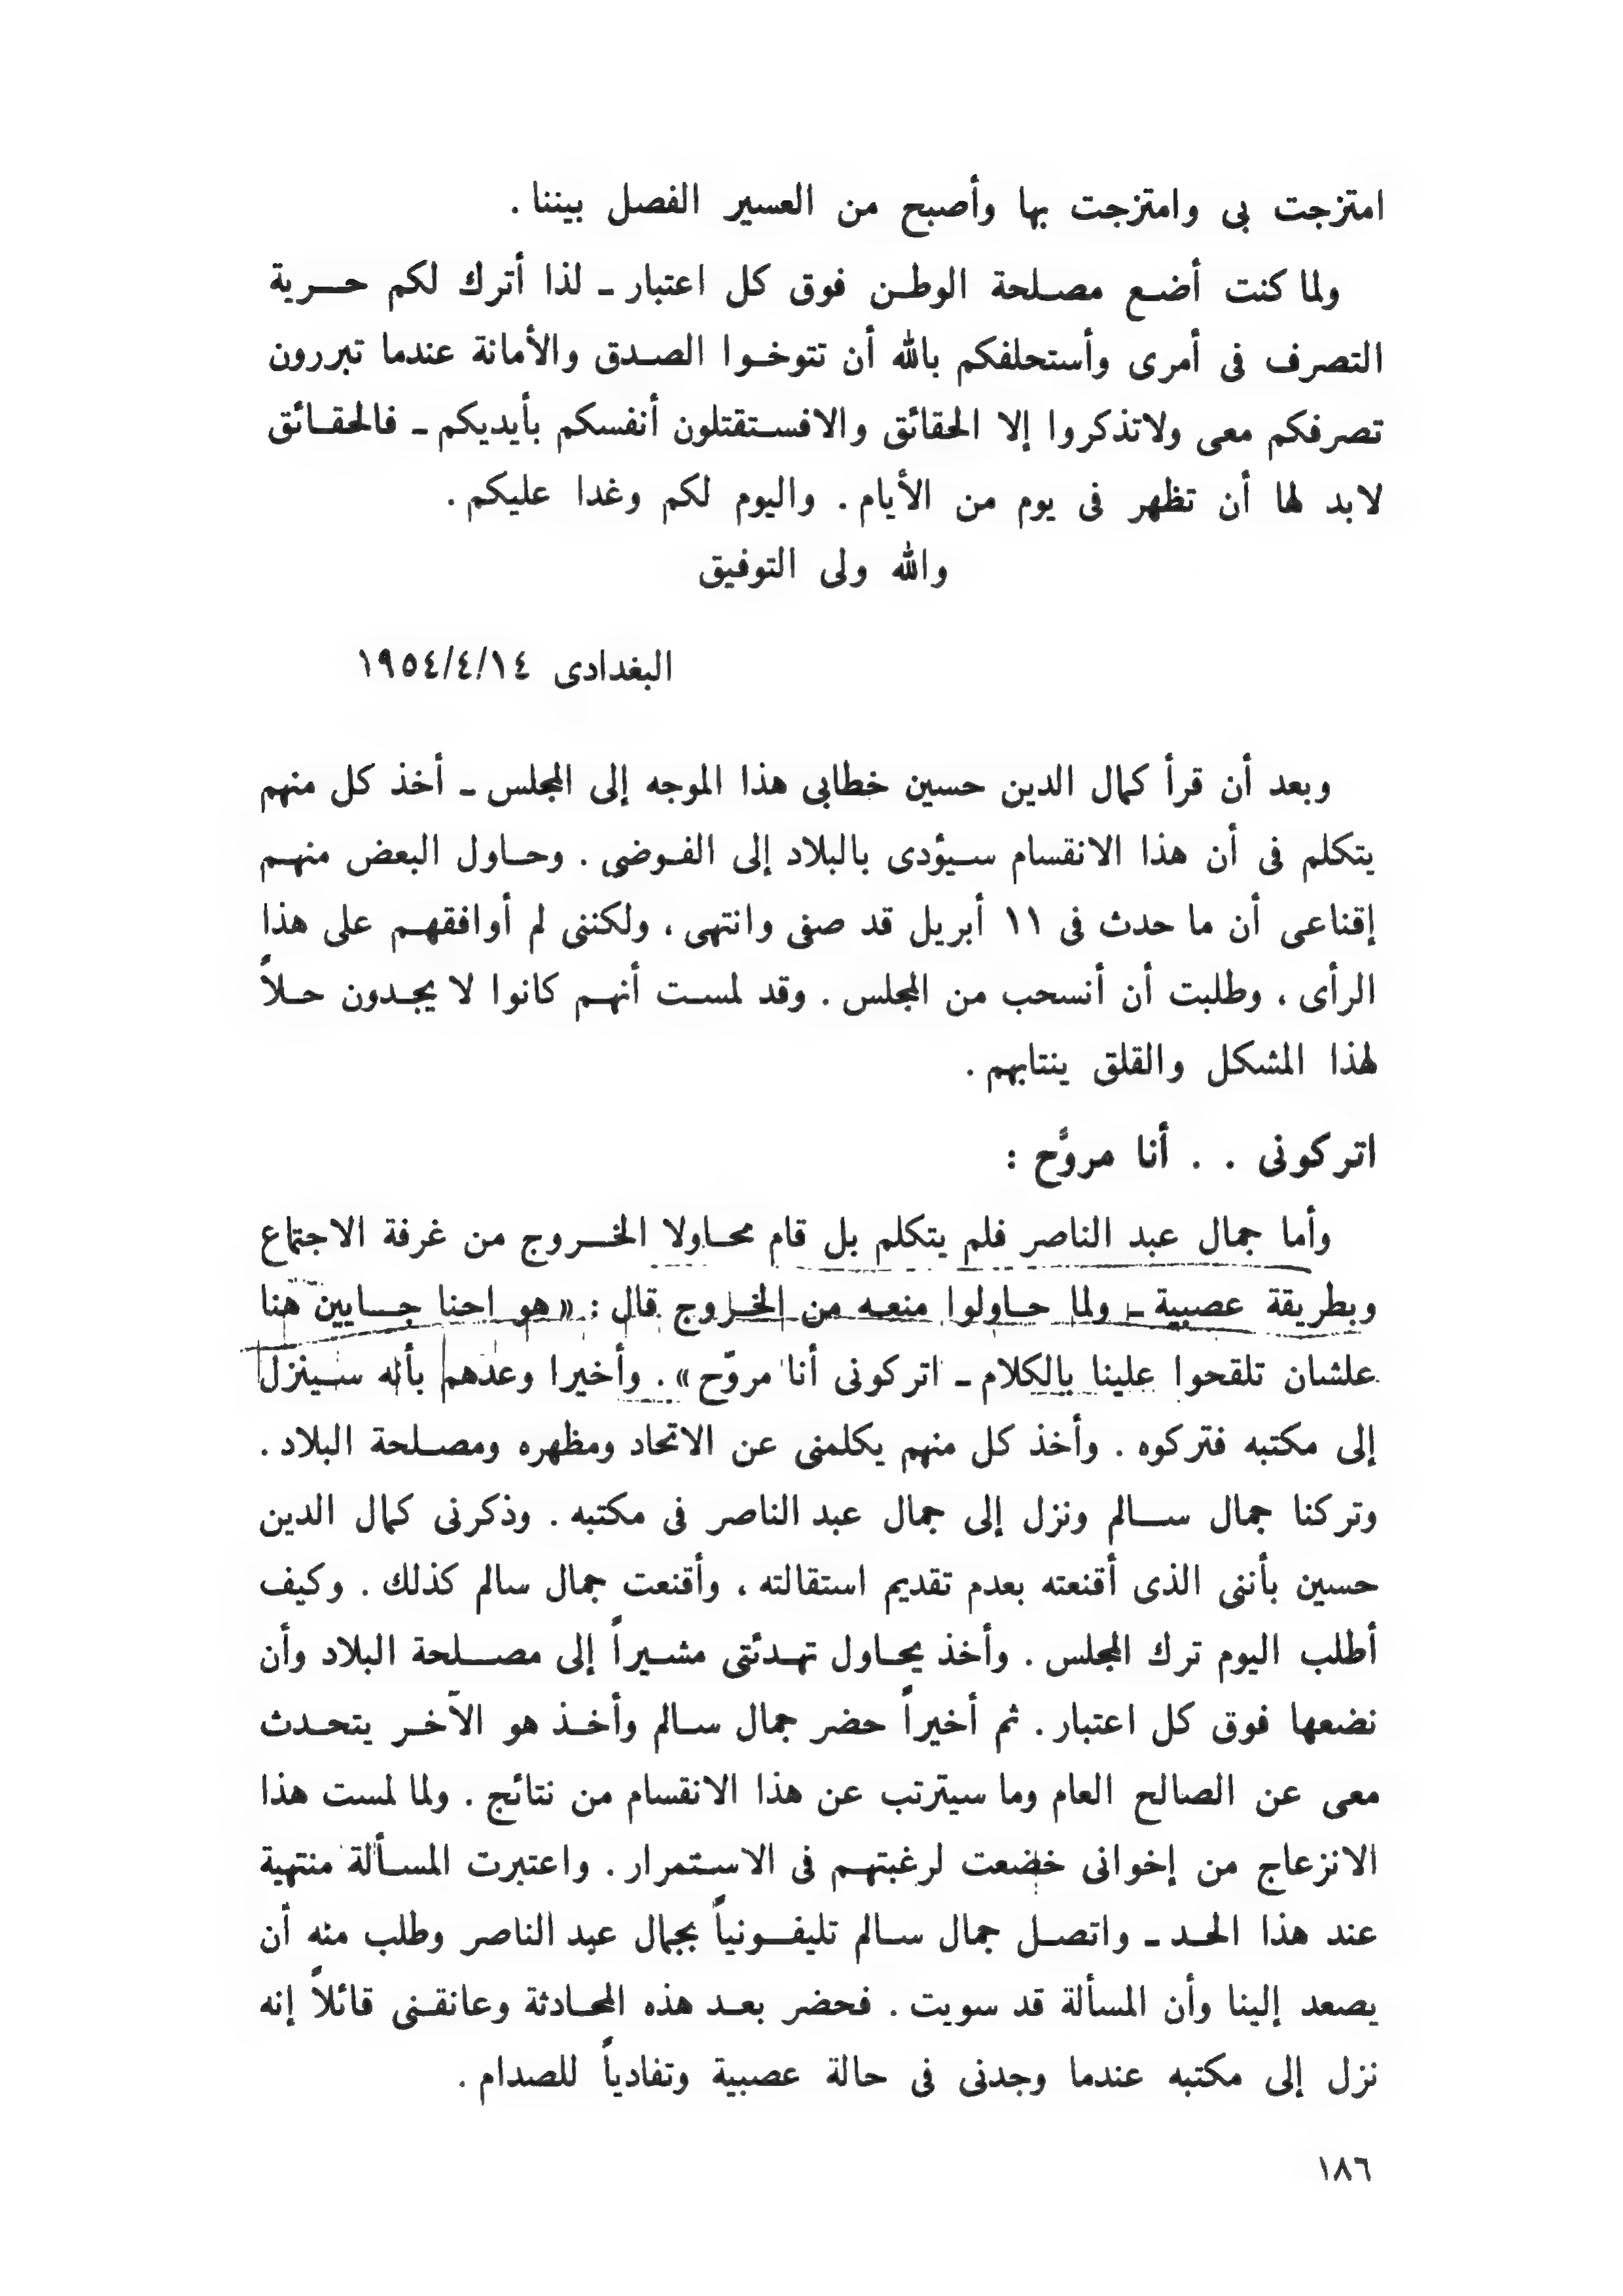 امتزجت بى وامتزجت بها وأصبح من العسير الفصل بيننا .
ولما كنت أضع مصلحة الوطن فوق كل اعتبار ـ لذا أترك لكم حرية
التصرف فى أمرى وأستحلفكم بالله أن تتوخوا الصدق والأمانة عندما تبررون
تصرفكم معى ولاتذكروا إلا الحقائق والافستقتلون أنفسكم بأيديكم ـ فالحقائق
لابد لها أن تظهر فى يوم من الأيام . واليوم لكم وغدا عليكم .
والله ولى التوفيق
البغدادى ١٩٥٤/٤/١٤
وبعد أن قرأ كمال الدين حسين خطابى هذا الموجه إلى المجلس ـ أخذ كل منهم
يتكلم فى أن هذا الانقسام سيؤدى بالبلاد إلى الفوضى . وحاول البعض منهم
إقناعى أن ما حدث فى ١١ أبريل قد صفى وانتهى ، ولكننى لم أوافقهم على هذا
الرأى ، وطلبت أن أنسحب من المجلس . وقد لمست أنهم كانوا لا يجدون حلاً
لهذا المشكل والقلق ينتابهم .
اتركونى . . أنا مروَّح :
وأما جمال عبد الناصر فلم يتكلم بل قام محاولا الخروج من غرفة الاجتماع
وبطريقة عصبية ـ ولما حاولوا منعه من الخروج قال : «هو احنا جايين هنا
علشان تلقحوا علينا بالكلام ـ اتركونى أنا مروّح» . وأخيرا وعدهم بأنه سينزل
إلى مكتبه فتركوه . وأخذ كل منهم يكلمنى عن الاتحاد ومظهره ومصلحة البلاد .
وتركنا جمال سالم ونزل إلى جمال عبد الناصر فى مكتبه . وذكرنى كمال الدين
حسين بأننى الذى أقنعته بعدم تقديم استقالته ، وأقنعت جمال سالم كذلك . وكيف
أطلب اليوم ترك المجلس . وأخذ يحاول تهدئتى مشيراً إلى مصلحة البلاد وأن
نضعها فوق كل اعتبار . ثم أخيراً حضر جمال سالم وأخذ هو الآخر يتحدث
معى عن الصالح العام وما سيترتب عن هذا الانقسام من نتائج . ولما لمست هذا
الانزعاج من إخوانى خضعت لرغبتهم فى الاستمرار . واعتبرت المسألة منتهية
عند هذا الحد ـ واتصل جمال سالم تليفونياً بجمال عبد الناصر وطلب منه أن
يصعد إلينا وأن المسألة قد سويت . فحضر بعد هذه المحادثة وعانقنى قائلاً إنه
نزل إلى مكتبه عندما وجدنى فى حالة عصبية وتفادياً للصدام .
١٨٦